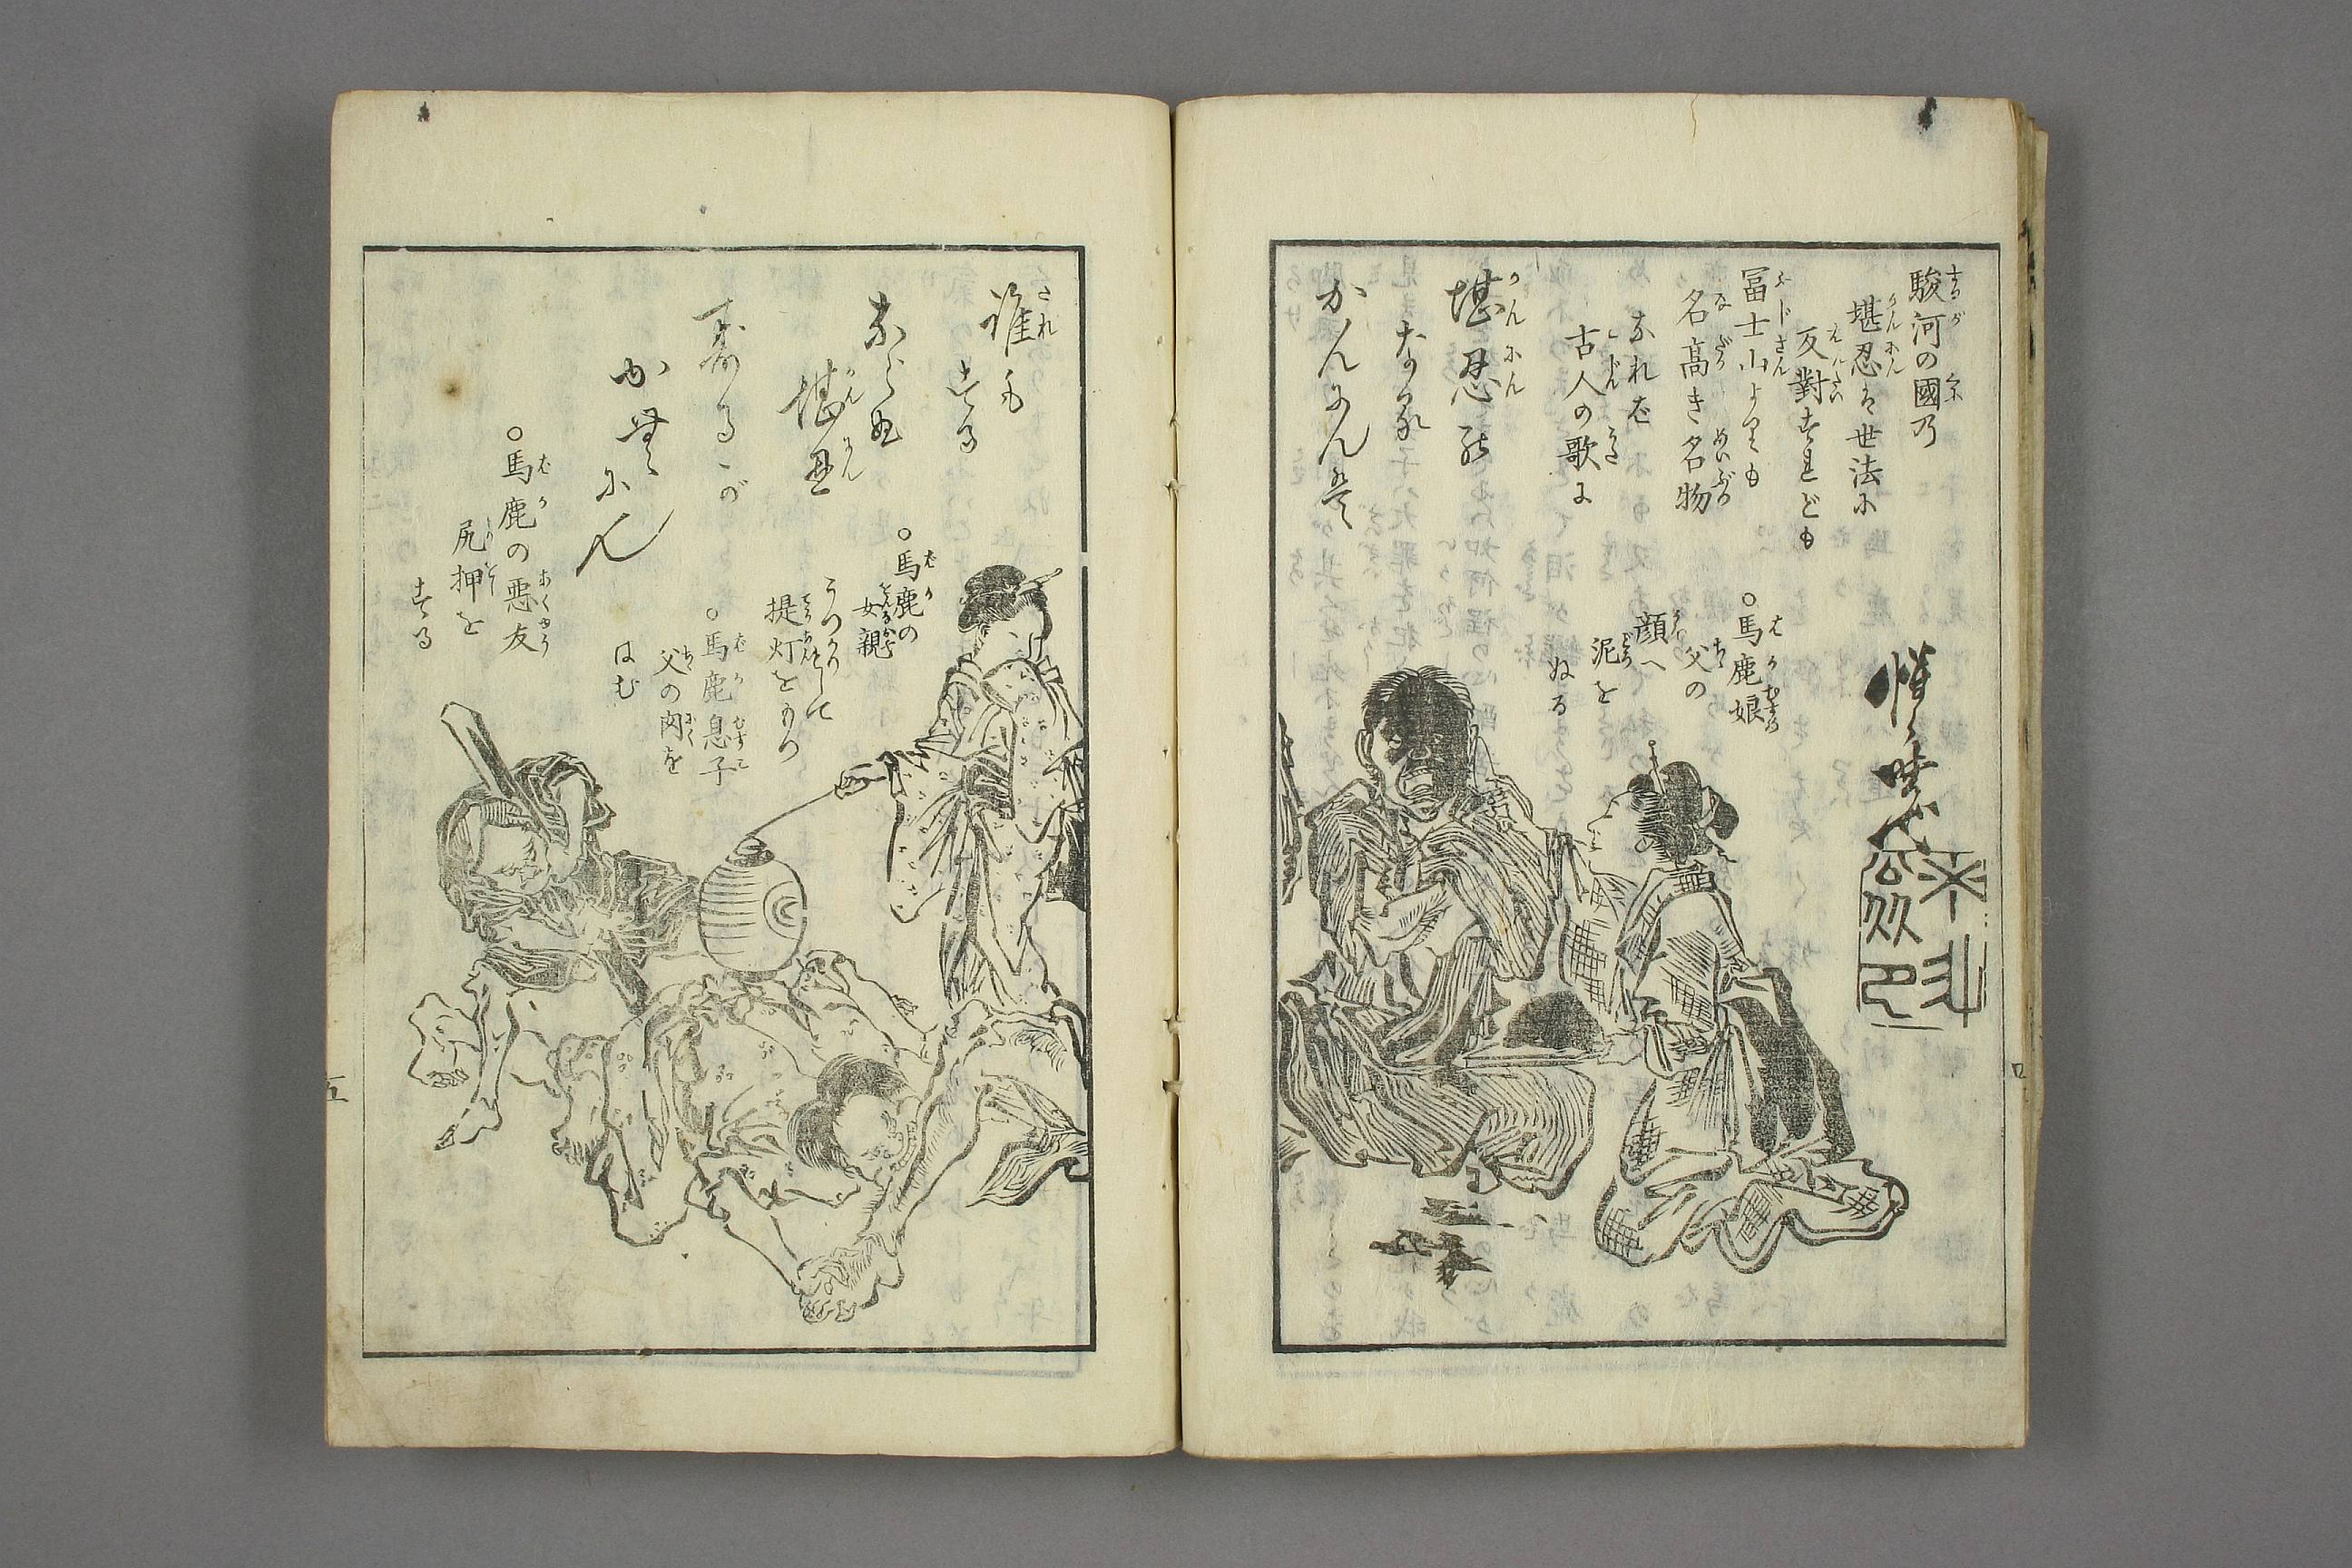 駿河の國乃
堪忍は世法に
反對すれども
冨士山よりも
名高き名物
なれば
古人の歌に
堪忍
かんにん
惺々暁斎
馬鹿娘
父の
顔へ
泥を
ぬる
誰も
する
ならぬ
堪忍
するが
かんにん
馬鹿の
女親
うつかりして
提灯をもつ
馬鹿息子
父の肉を
はむ
馬鹿の悪友
尻押を
する
五